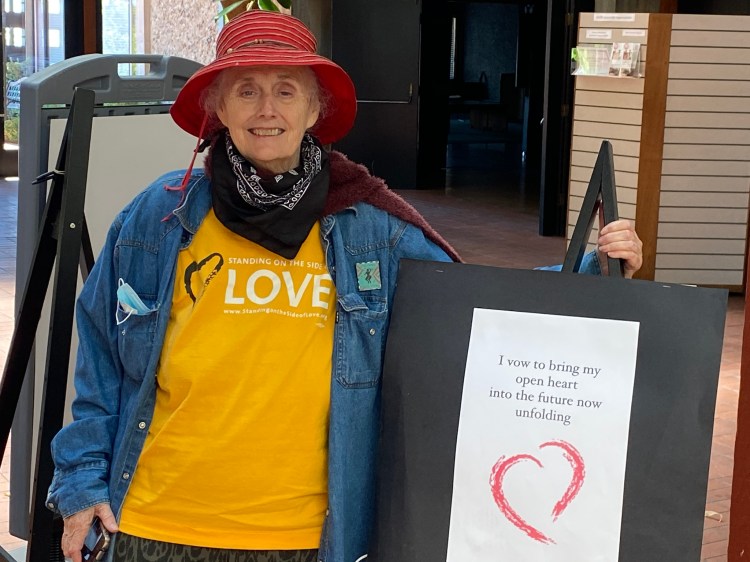 STANDING ON THE SIDE
LOVE
www.StandingontheSideofLove.org
I vow to bring my
open heart
into the future now
unfolding